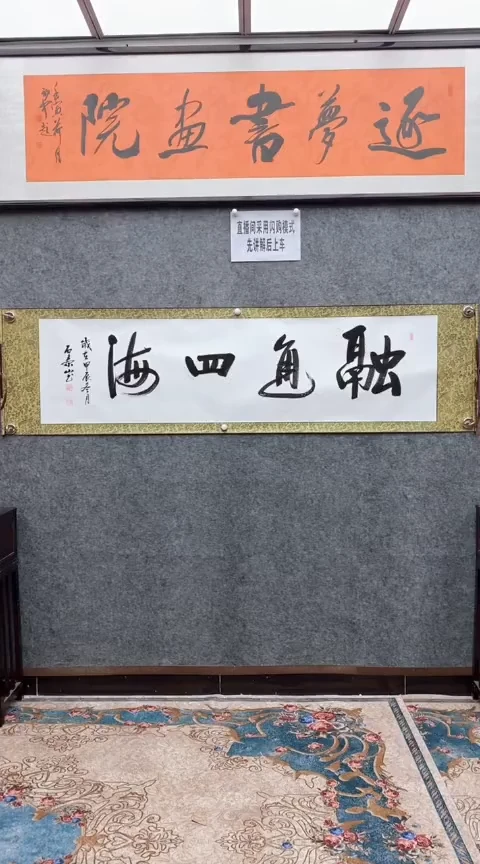 逐夢書畫院
直播间采用闪购模式
先讲解后上车
融通四海
歲在甲辰冬月